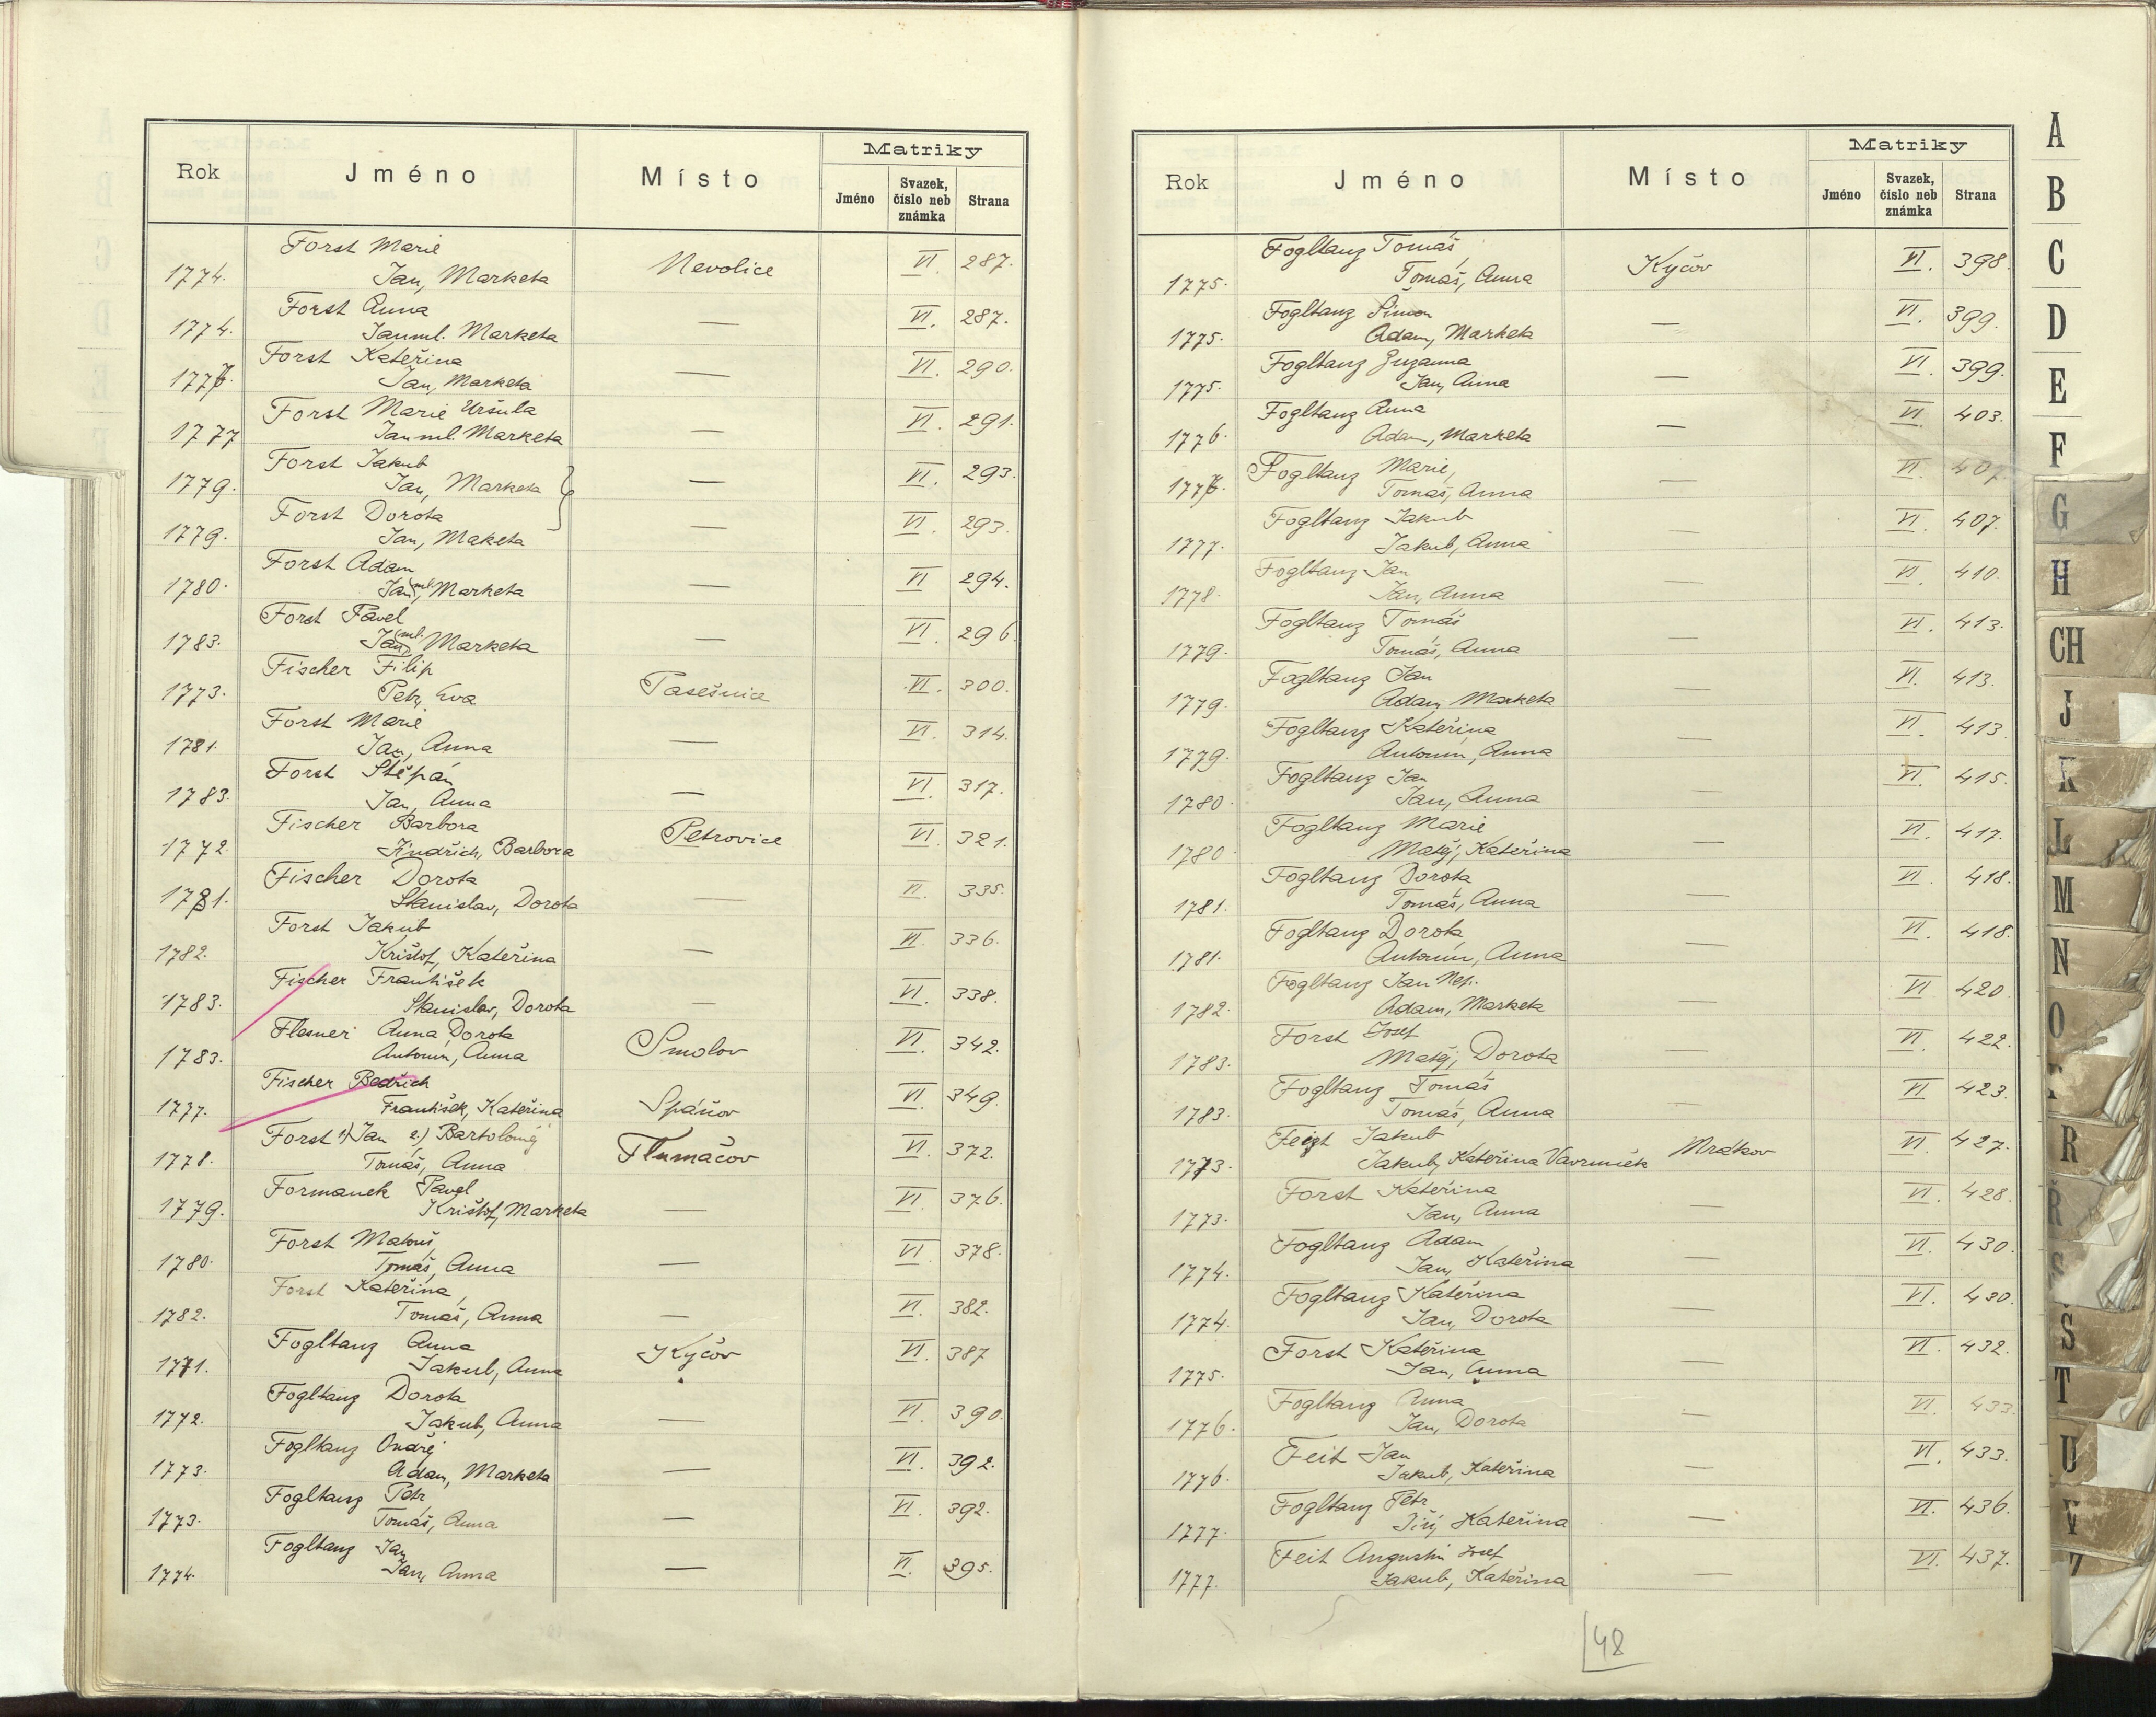 Rok Jméno Místo Matriky
Jméno Svazek, číslo neb známka Strana
Forst Marie
1774. Jan, Marketa Nevolice VI. 287.
Forst Anna
1774. Jan ml. Marketa — VI. 287.
Forst Kateřina
1776. Jan, Marketa — VI. 290.
Forst Marie Uršula
1777 Jan ml. Marketa — VI. 291.
Forst Jakub
1779. Jan, Marketa — VI. 293.
Forst Dorota
1779. Jan, Maketa — VI. 293.
Forst Adam
1780. Jan ml., Marketa — VI 294.
Forst Pavel
1783. Jan (ml.) Marketa — VI. 296.
Fischer Filip
1773. Petr, Eva Pasešnice VI. 300.
Forst Marie
1781. Jan, Anna — VI. 314.
Forst Štěpán
1783. Jan, Anna — VI. 317.
Fischer Barbora
1772. Jindřich, Barbora Petrovice VI. 321.
Fischer Dorota
1781. Stanislav, Dorota — VI. 335.
Forst Jakub
1782. Krištof, Kateřina — VI. 336.
Fischer František
1783. Stanislav, Dorota — VI. 338.
Flesneri Anna Dorota
1783. Antonín, Anna Smolov VI. 342.
Fischer Bedřich
1777. František, Kateřina Spáňov VI 349.
Forst 1) Jan 2.) Bartoloměj
1778. Tomáš, Anna Tlumačov VI. 372.
Formanek Pavel
1779. Krištof, Marketa — VI. 376.
Forst Matouš
1780. Tomáš, Anna — VI. 378.
Forst Kateřina
1782. Tomáš, Anna — VI. 382.
Fogltanz Anna
1771. Jakub, Anna Kyčov VI. 387
Fogltanz Dorota
1772. Jakub, Anna — VI. 390.
Fogltanz Ondřej
1773. Adam, Marketa — VI. 392.
Fogltanz Petr
1773. Tomáš, Anna — VI. 392.
Fogltanz Jan
1774. Jan, Anna — VI. 395.
Rok Jméno Místo Matriky
Jméno Svazek, číslo neb známka Strana
Fogltanz Tomáš
1775. Tomáš, Anna Kyčov VI. 398.
Fogltanz Šimon
1775. Adam, Marketa — VI. 399.
Fogltanz Zuzanna
1775. Jan, Anna — VI. 399.
Fogltanz Anna
1776. Adam, Marketa — VI. 403.
Fogltanz Marie
1776. Tomáš, Anna — VI. 407
Fogltanz Jakub
1777. Jakub, Anna — VI. 407.
Fogltanz Jan
1778. Jan, Anna — VI. 410.
Fogltanz Tomáš
1779. Tomáš, Anna — VI. 413.
Fogltanz Jan
1779. Adam, Marketa — VI. 413.
Fogltanz Kateřina
1779. Antonín, Anna — VI. 413.
Fogltanz Jan
1780. Jan, Anna — VI. 415.
Fogltanz Marie
1780. Matěj, Kateřina — VI. 417.
Fogltanz Dorota
1781. Tomáš, Anna — VI. 418.
Fogltanz Dorota
1781. Antonín, Anna — VI. 418.
Fogltanz Jan Nep.
1782. Adam, Marketa — VI 420.
Forst Josef
1783. Matěj, Dorota — VI. 422.
Fogltanz Tomáš
1783. Tomáš, Anna — VI 423.
Feigt Jakub
1773. Jakub, Kateřina Vavruněk Mrákov VI. 427.
Forst Kateřina
1773. Jan, Anna — VI. 428.
Fogltanz Adam
1774. Jan, Kateřina — VI. 430.
Fogltanz Kateřina
1774. Jan, Dorota — VI. 430.
Forst Kateřina
1775. Jan, Anna — VI. 432.
Fogltanz Anna
1776. Jan, Dorota — VI. 433.
Feit Jan
1776. Jakub, Kateřina — VI. 433.
Fogltanz Petr
1777. Jiří, Kateřina — VI. 436.
Feit Augustin Josef
1777. Jakub, Kateřina — VI. 437.
48
A
B
C
D
E
F
G
H
CH
J
K
L
M
N
O
R
Ř
S
Š
T
U
V